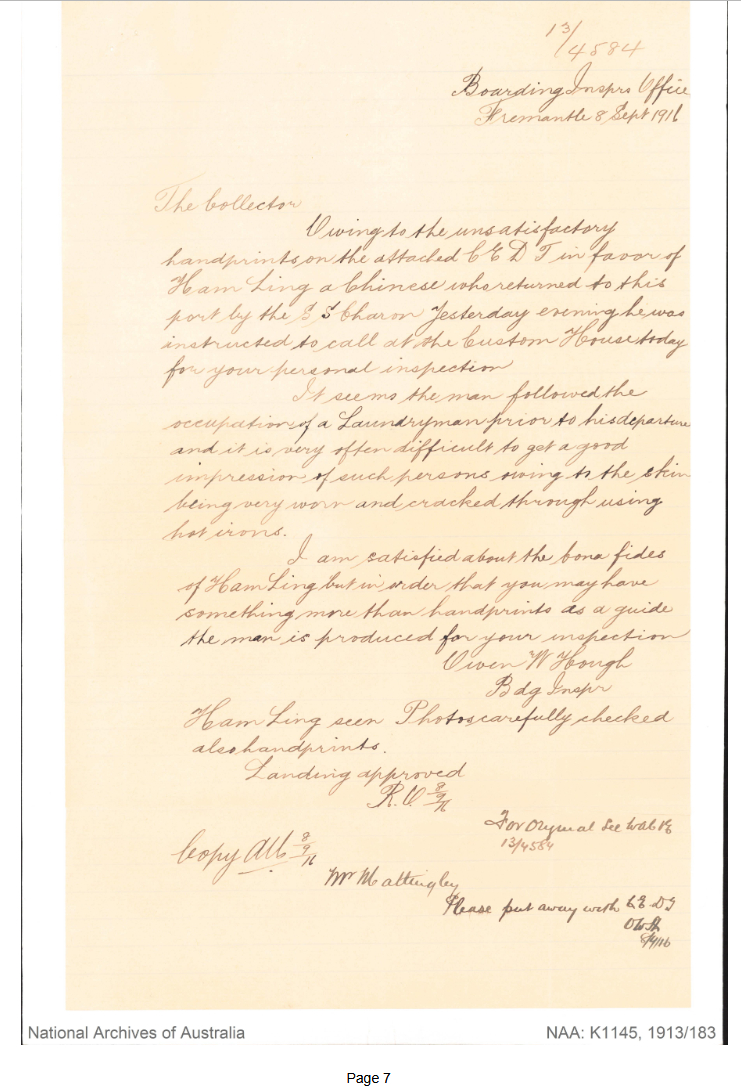 13/
4584
Boarding Insprs Office
Fremantle 8 Sept 1916
The Collector
Owing to the unsatisfactory
handprints on the attached C E D T in favor of
Ham Ling a Chinese who returned to this
port by the S S Charon Yesterday evening he was
instructed to call at the Custom House today
for your personal inspection
It seems the man followed the
occupation of a Laundryman prior to his departure
and it is very often difficult to get a good
impression of such persons owing to the skin
being very worn and cracked through using
hot irons.
I am satisfied about the bona fides
of Ham Ling but in order that you may have
something more than handprints as a guide
the man is produced for your inspection
Owen W Hough
Bdg Inspr
Ham Ling seen Photos carefully checked
also handprints.
Landing approved
R. O 8/9/16
For Original See
13/4584
Copy 8/9/16
Mr Mattingley
Please put away with C E D T
OWH